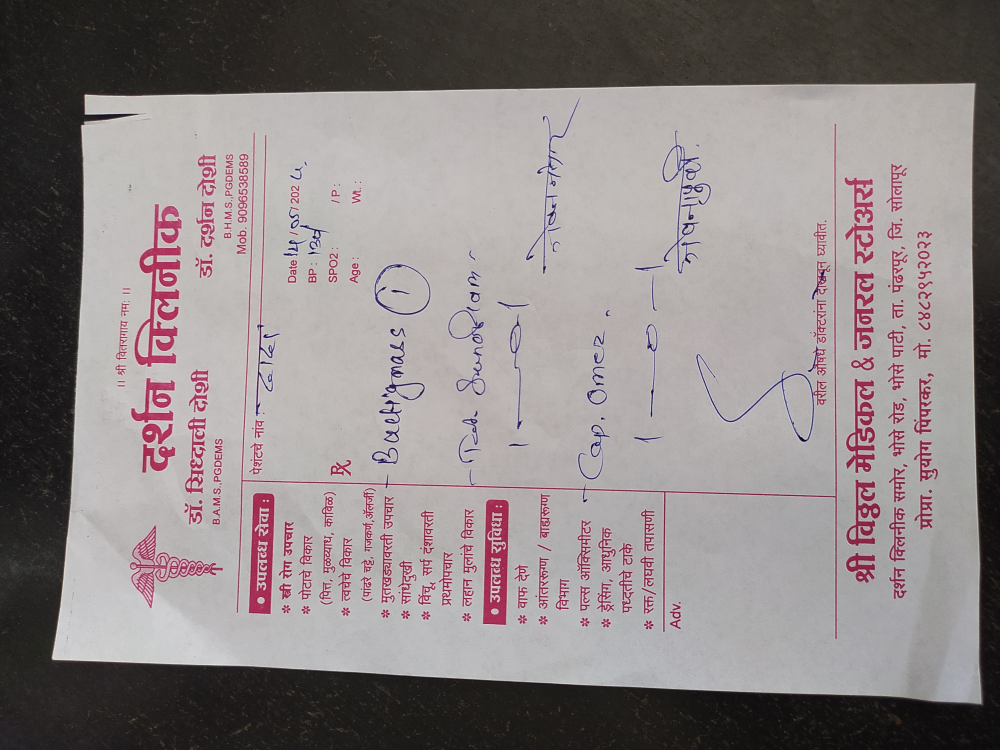 ।। श्री वितरागाय नमः ।।
दर्शन क्लिनीक
डॉ. सिध्दाली दोशी
B.A.M.S.,PGDEMS
डॉ. दर्शन दोशी
B.H.M.S.,PGDEMS
Mob. 9096538589
• उपलब्ध सेवा :
* स्त्री रोग उपचार
* पोटाचे विकार
(पित्त, मुळव्याध, काविळ)
* त्वचेचे विकार
(पांढरे चट्टे, गजकर्ण,ॲलर्जी)
* मुतखड्यावरती उपचार
* सांधेदुखी
* विंचू, सर्प दंशावरती
प्रथमोपचार
* लहान मुलांचे विकार
• उपलब्ध सुविधा :
* वाफ देणे
* आंतररूग्ण / बाह्यरूग्ण
विभाग
* पल्स ऑक्सिमीटर
* ड्रेसिंग, आधुनिक
पध्दतीचे टाके
* रक्त/लघवी तपासणी
Adv.
पेशंटचे नांव :-
Date 14/05/202
BP : 130
SPO2 : / P :
Age : Wt. :
Rx
① 
- Tab
1 — 0 — 1
- Cap. Omez.
1 — 0 — 1
जेवनापुर्वी.
वरील औषधे डॉक्टरांना दाखवून घ्यावीत.
श्री विठ्ठल मेडिकल & जनरल स्टोअर्स
दर्शन क्लिनीक समोर, भोसे रोड, भोसे पाटी, ता. पंढरपूर, जि. सोलापूर
प्रोप्रा. सुयोग पिंपरकर, मो. ८४८२९५२०२३